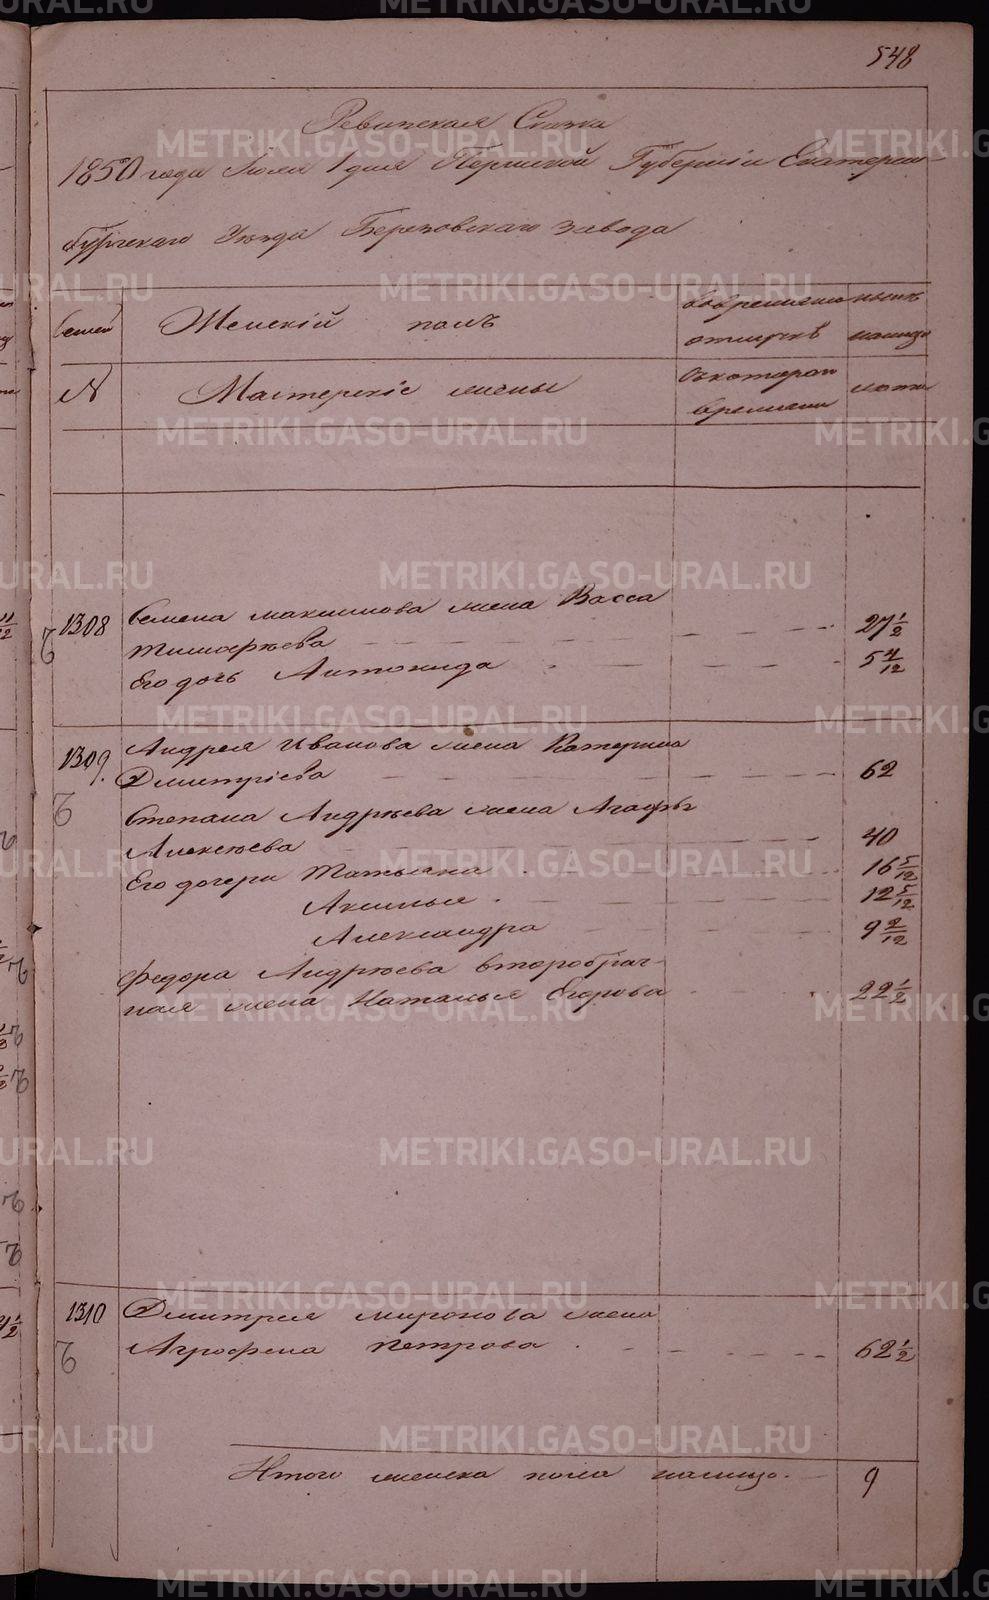 548
Ревизская Сказка
1850 года Июля 1 дня Пермской Губерніи Екатерин-
бургскаго Уезда Березовскаго завода
Семей
Женскій полъ
во временно
отлучкѣ
ныне
налицо
N
Мастерскіе жены
съ котораго
времени
лета
1308
Семена Максимова жена Васса
Тимофеева
27 1/2
Его дочь Антонида
5 4/12
1309.
Андрея Иванова жена Катерина
Дмитріева
62
Степана Андреева жена Агафья
Алексеева
40
Его дочери Татьяна
16 5/12
Аксинья
12 5/12
Александра
9 2/12
Федора Андреева второбрач-
ная жена Наталья Егорова
22 1/2
1310
Дмитрея Миронова жена
Агрофена Петрова
62 1/2
Итого женска пола налицо.
9
METRIKI.GASO-URAL.RU